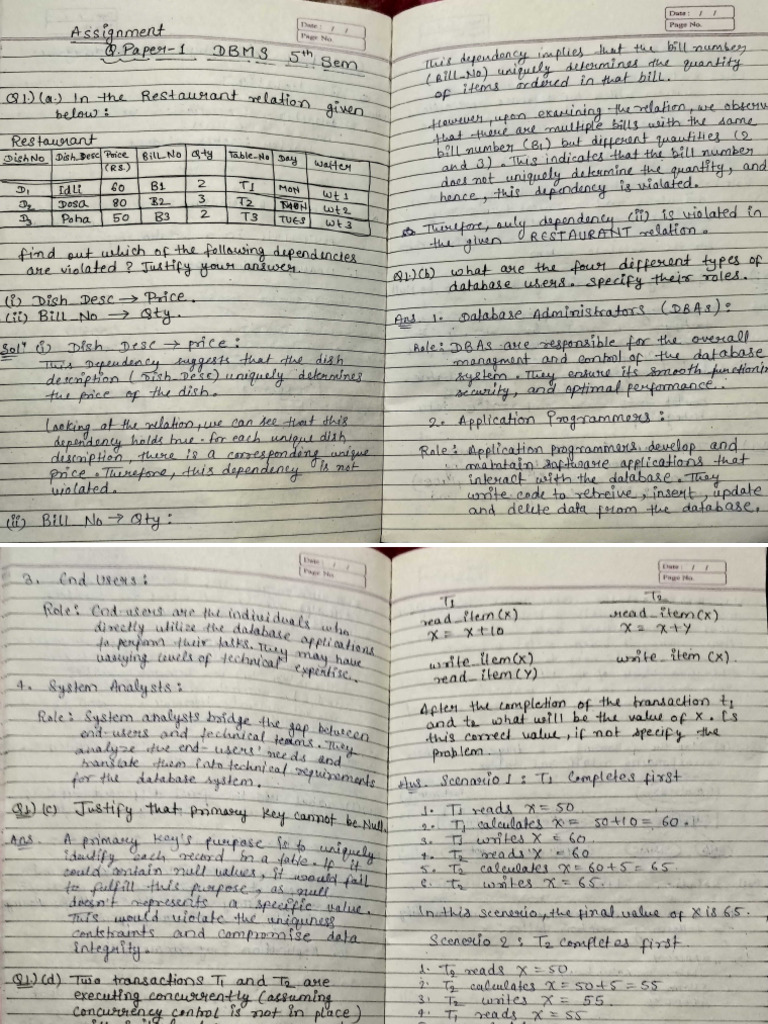 Date : / /
Page No.
Assignment
Q.Paper-1 DBMS 5th Sem
Q1.)(a.) In the Restaurant relation given
below:
Restaurant
Dish No Dish_Desc Price (RS.) Bill_No Q-ty Table-No Day Waiter
D1 Idli 60 B1 2 T1 MON Wt1
D2 Dosa 80 B2 3 T2 MON Wt2
D3 Poha 50 B3 2 T3 TUES Wt3
find out which of the following dependencies
are violated? Justify your answer.
(i) Dish_Desc → Price.
(ii) Bill_No → Qty.
Solⁿ (i) Dish_Desc → price :
This Dependency suggests that the dish
description (Dish_Desc) uniquely determines
the price of the dish.
Looking at the relation, we can see that this
dependency holds true. for each unique dish
description, there is a corresponding unique
price. Therefore, this dependency is not
violated.
(ii) Bill_No → Qty :
Date : / /
Page No.
This dependency implies that the bill number
(Bill_No) uniquely determines the quantity
of items ordered in that bill.
However, upon examining the relation, we observe
that there are multiple bills with the same
bill number (B1) but different quantities (2
and 3). This indicates that the bill number
does not uniquely determine the quantity, and
hence, this dependency is violated.
Therefore, only dependency (ii) is violated in
the given RESTAURANT relation.
Q1.)(b) what are the four different types of
database users. specify their roles.
Ans 1. Database Administrators (DBAs):
Role: DBAs are responsible for the overall
managment and control of the database
system. They ensure its smooth functionin
security, and optimal performance.
2. Application Programmers :
Role: Application programmers develop and
maintain software applications that
interact with the database. They
write code to retreive, insert, update
and delete data from the database.
Date : / /
Page No.
3. End Users :
Role: End-users are the individuals who
directly utilize the database applications
to perform their tasks. They may have
varying levels of technical expertise.
4. System Analysts :
Role: System analysts bridge the gap between
end-users and technical teams. They
analyze the end-users' needs and
translate them into technical requirements
for the database system.
Q1)(c) Justify that primary key cannot be Null.
Ans. A primary key's purpose is to uniquely
identify each record in a table. If it
could contain null values, it would fail
to fulfill this purpose, as null
doesn't represents a specific value.
This would violate the uniqueness
constraints and compromise data
integrity.
Q1)(d) Two transactions T1 and T2 are
executing concurrently (assuming
concurrency control is not in place)
Date : / /
Page No.
T1 T2
read_item(X) read_item(X)
X = X+10 X = X+Y
write_item(X) write_item (X).
read_item(Y)
After the completion of the transaction t1
and t2 what will be the value of X. Is
this correct value, if not specify the
problem.
Ans. Scenario 1 : T1 Completes first
1. T1 reads X = 50
2. T1 calculates X = 50+10 = 60.
3. T1 writes X = 60
4. T2 reads X = 60
5. T2 calculates X = 60+5 = 65
6. T2 writes X = 65.
In this scenerio, the final value of X is 65.
Scenerio 2 : T2 completes first.
1. T2 reads X = 50.
2. T2 calculates X = 50+5 = 55
3. T2 writes X = 55.
4. T1 reads X = 55